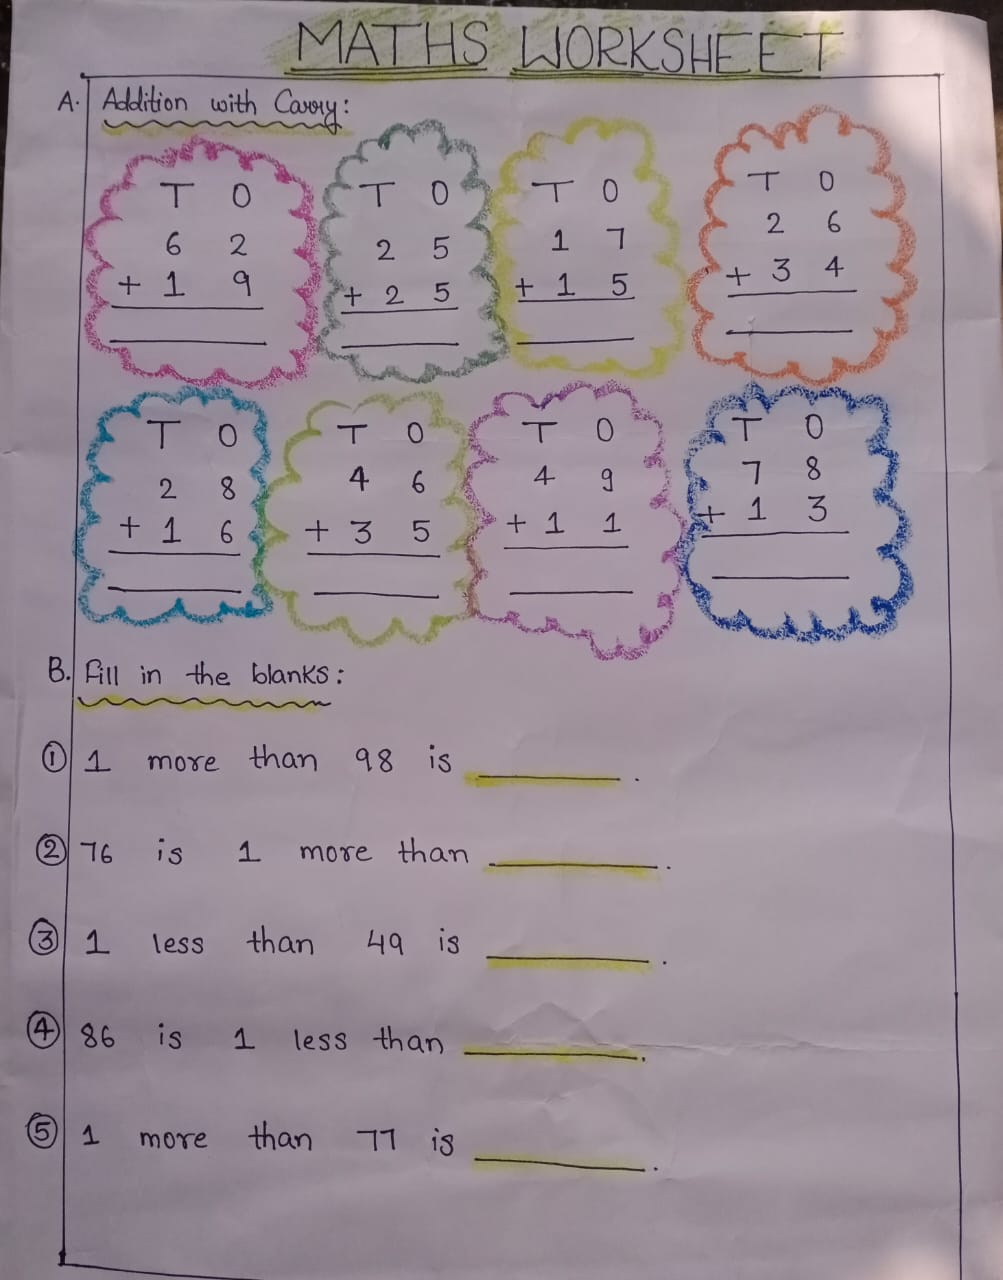 MATHS WORKSHEET
A. Addition with Carry:
T O
6 2
+ 1 9
T O
2 5
+ 2 5
T O
1 7
+ 1 5
T O
2 6
+ 3 4
T O
2 8
+ 1 6
T O
4 6
+ 3 5
T O
4 9
+ 1 1
T O
7 8
+ 1 3
B. Fill in the blanks:
① 1 more than 98 is ______.
② 76 is 1 more than ______.
③ 1 less than 49 is ______.
④ 86 is 1 less than ______.
⑤ 1 more than 77 is ______.